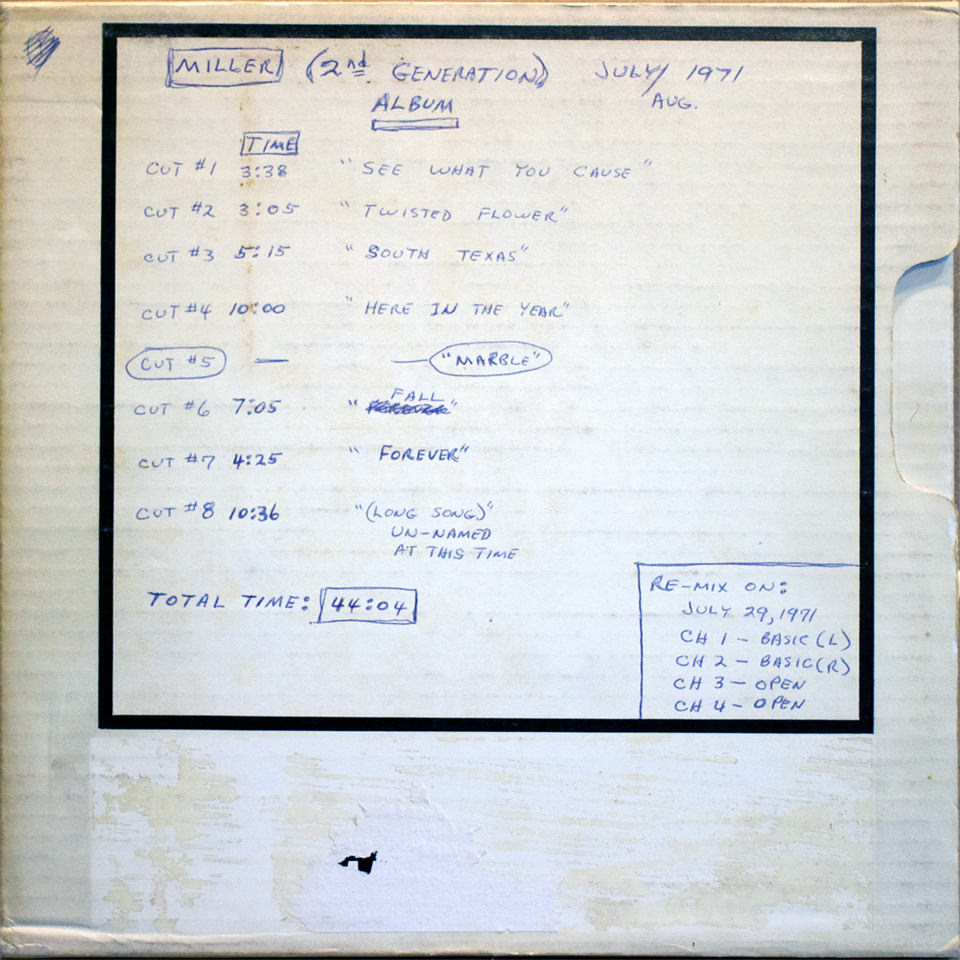 MILLER (2nd GENERATION) JULY/ 1971
ALBUM AUG.
TIME
CUT #1 3:38 "SEE WHAT YOU CAUSE"
CUT #2 3:05 "TWISTED FLOWER"
CUT #3 5:15 "SOUTH TEXAS"
CUT #4 10:00 "HERE IN THE YEAR"
CUT #5 — — "MARBLE"
FALL
CUT #6 7:05 " "
CUT #7 4:25 "FOREVER"
CUT #8 10:36 "(LONG SONG)"
UN-NAMED
AT THIS TIME
TOTAL TIME: 44:04
RE-MIX ON:
JULY 29, 1971
CH 1 - BASIC (L)
CH 2 - BASIC (R)
CH 3 - OPEN
CH 4 - OPEN